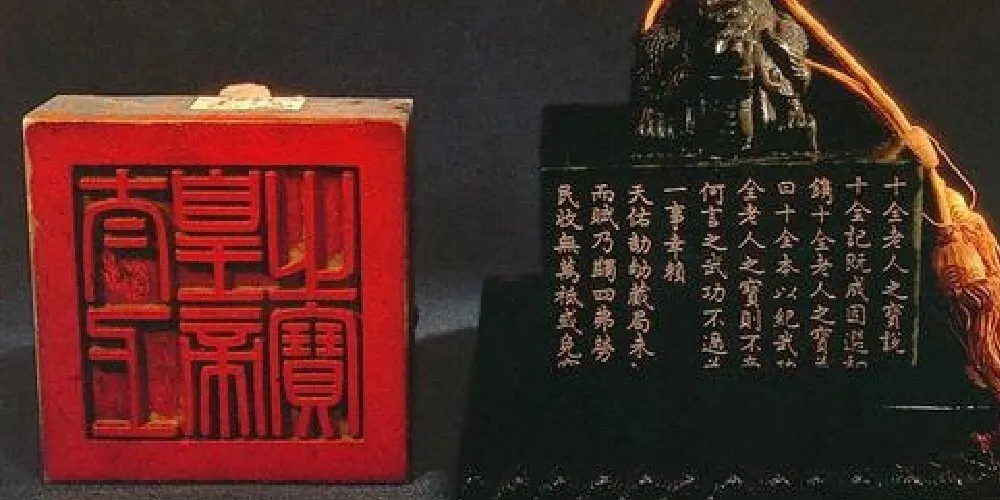 太上
皇帝
之寶
十全老人之寶說
十全記既成因選
鐫十全老人之寶
曰十全本以紀武
全老人之寶則不
何言之武功不過
一事幸賴
天佑劼劬蕆局未
而賦乃蠲四弗勞
民收無萬祇或免